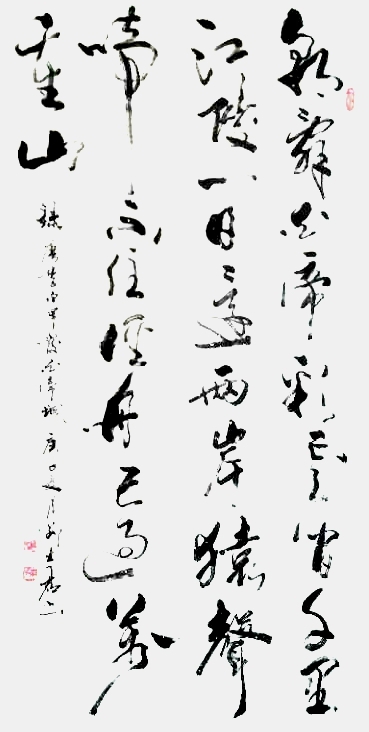 朝辭白帝彩雲間千里
江陵一日還兩岸猿聲
啼不住輕舟已過萬
重山
錄唐李白早發白帝城